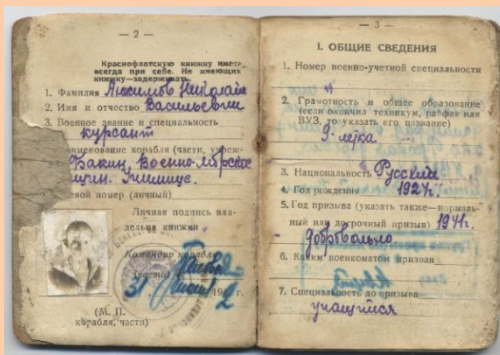 — 2 —
Краснофлотскую книжку иметь
всегда при себе. Не имеющих
книжку—задерживать.
1. Фамилия Николай
2. Имя и отчество Васильевич
3. Военное звание и специальность
курсант
наименование корабля (части, учреж-
Бакин. Военно-Морское
Училище.
номер (личный)
Личная подпись вла-
дельца книжки
Командир корабля
(части)
31 194 2
(М. П.
корабля, части)
— 3 —
I. ОБЩИЕ СВЕДЕНИЯ
1. Номер военно-учетной специальности
2. Грамотность и общее образование
(если окончил техникум, рабфак или
ВУЗ, то указать его название)
9-летка.
3. Национальность Русский
4. Год рождения 1924 г.
5. Год призыва (указать также—нормаль-
ный или досрочный призыв) 1941 г.
добровольно
6. Каким военкоматом призван
7. Специальность до призыва
учащийся